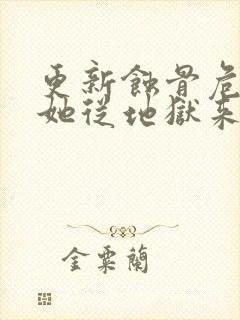 更新蝕骨危
她從地獄來
金粟蘭